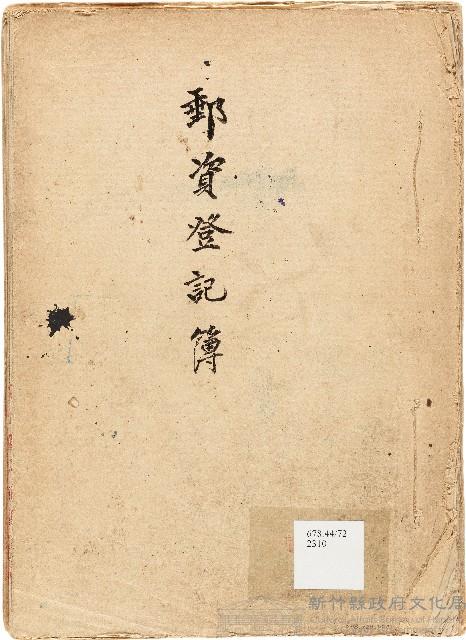 郵資登記簿
678.44/72
2310
新竹縣政府文化局